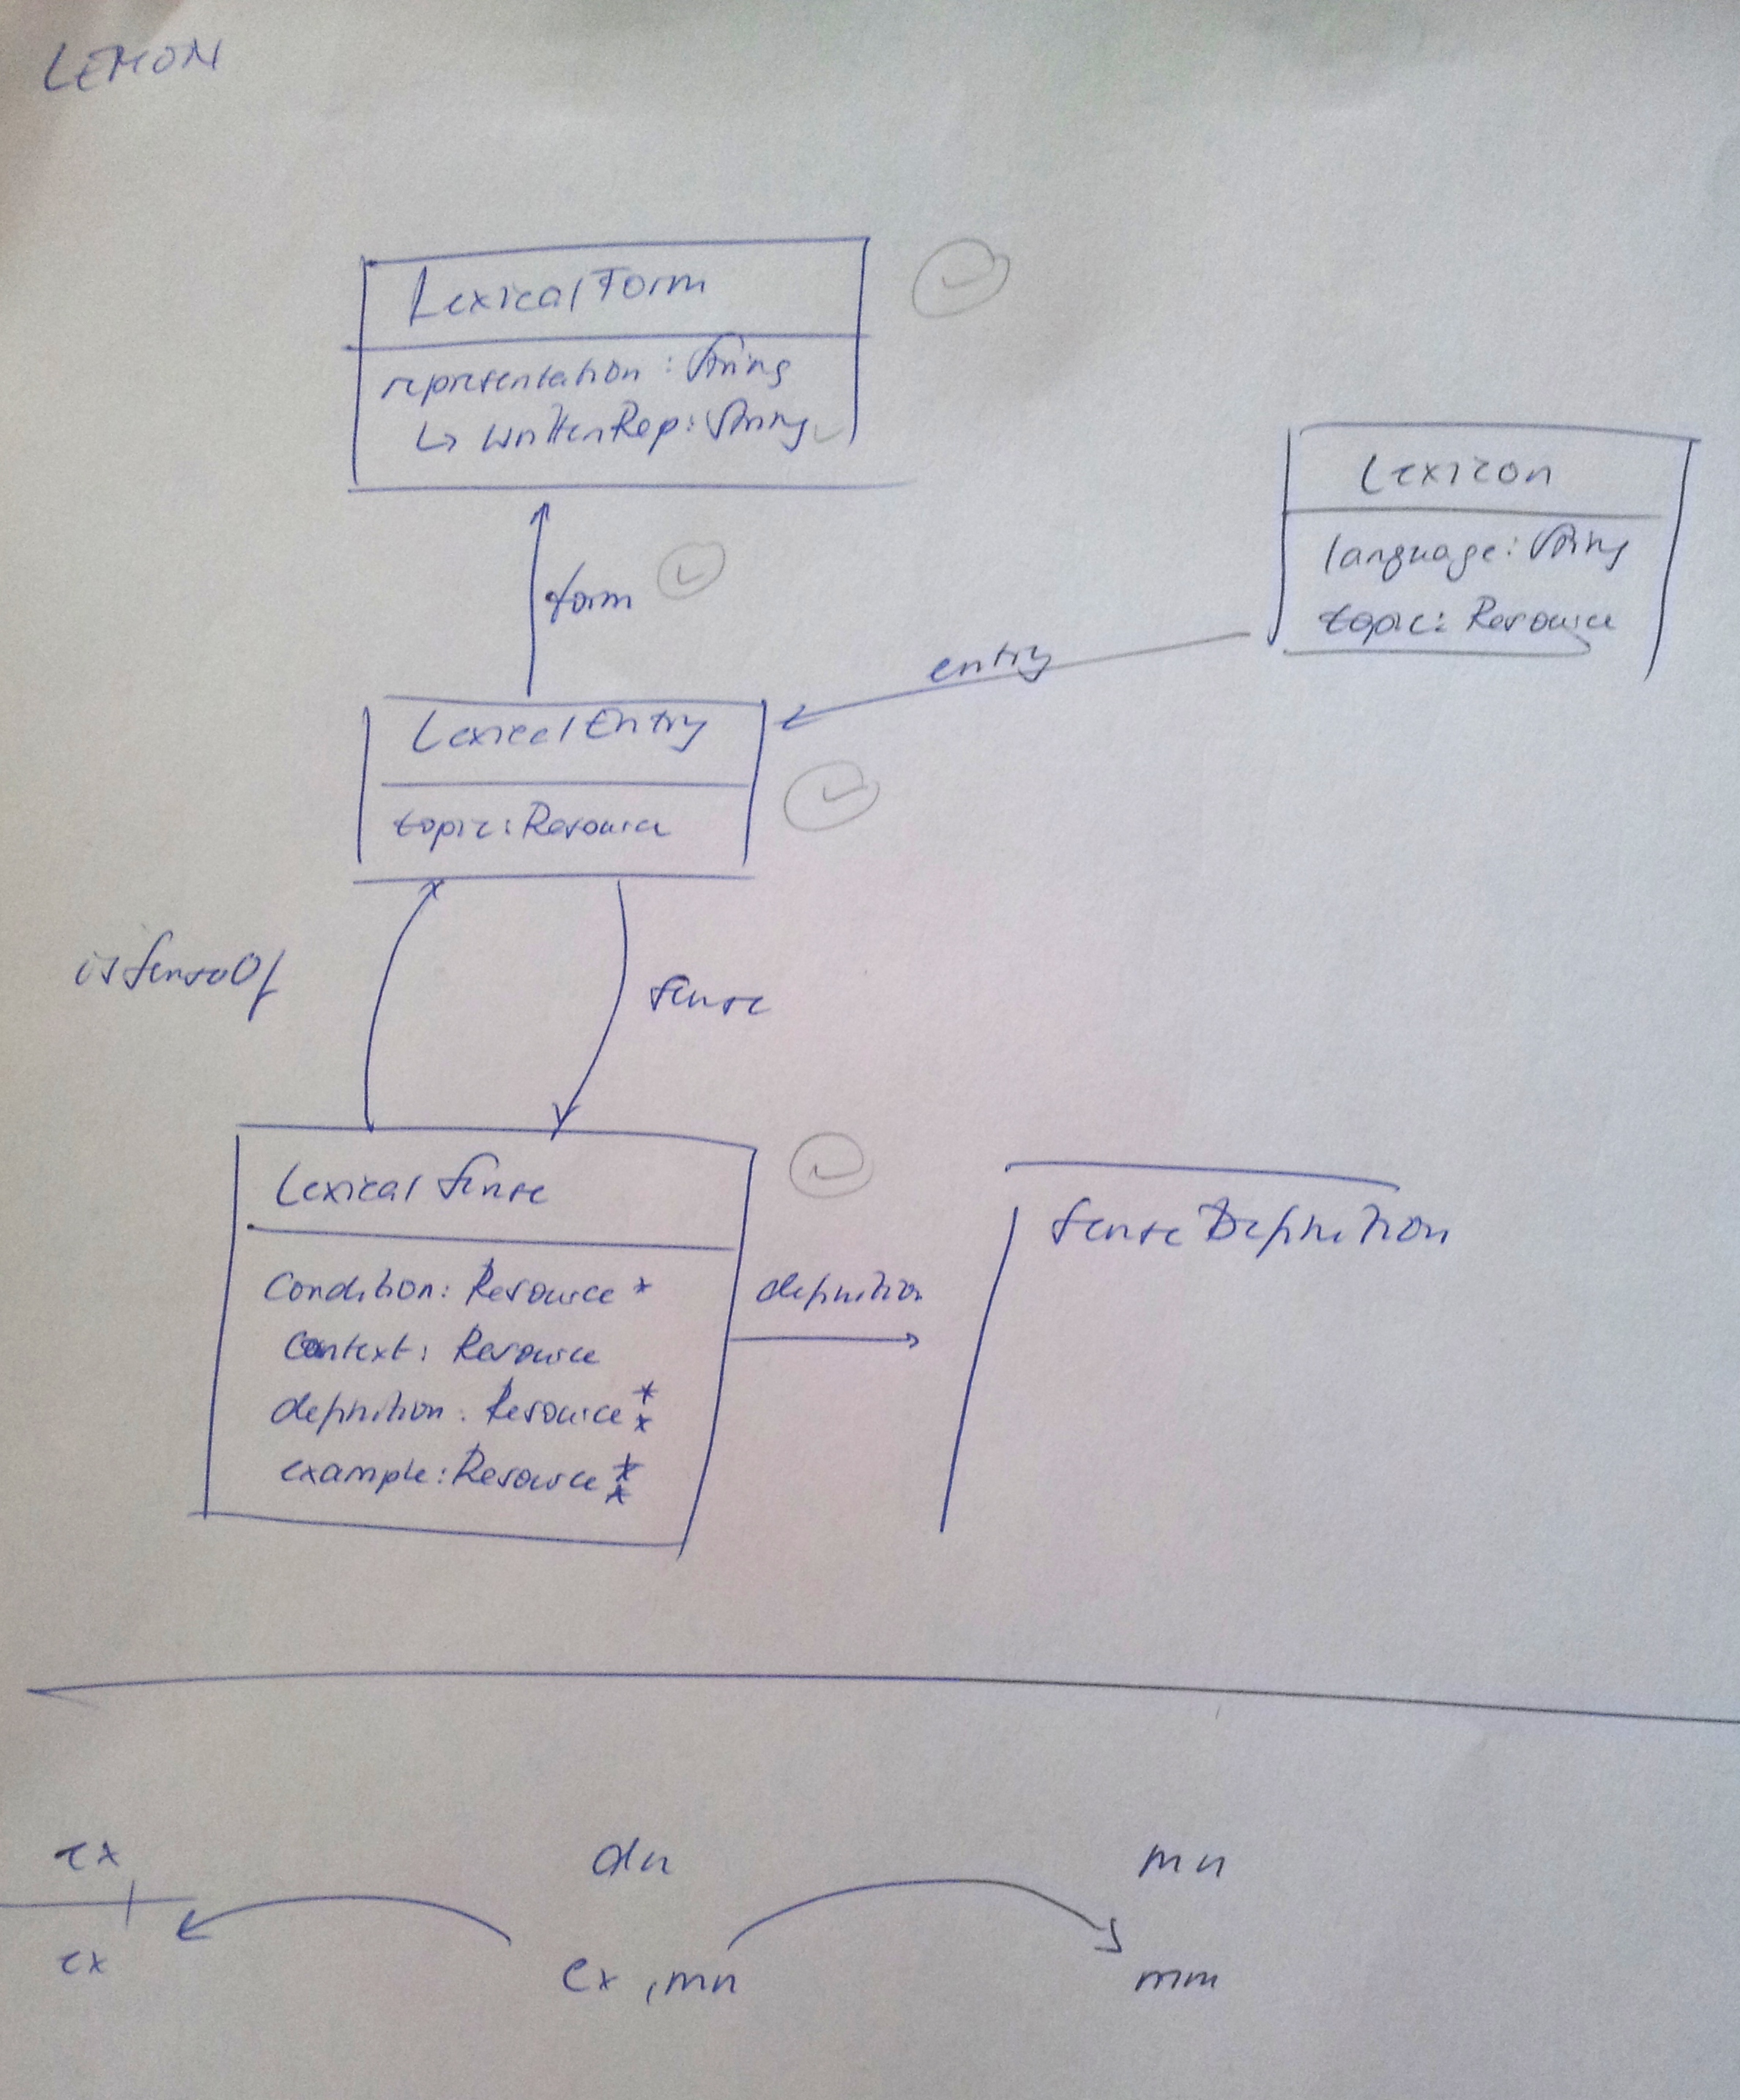 LEMON
LexicalForm
representation: String
↳ writtenRep: String
Lexicon
language: String
topic: Resource
form
entry
LexicalEntry
topic: Resource
isSenseOf
sense
LexicalSense
SenseDefinition
condition: Resource *
context: Resource
definition: Resource * *
example: Resource * *
definition
ex
dn
mn
ex
ex, mn
mm